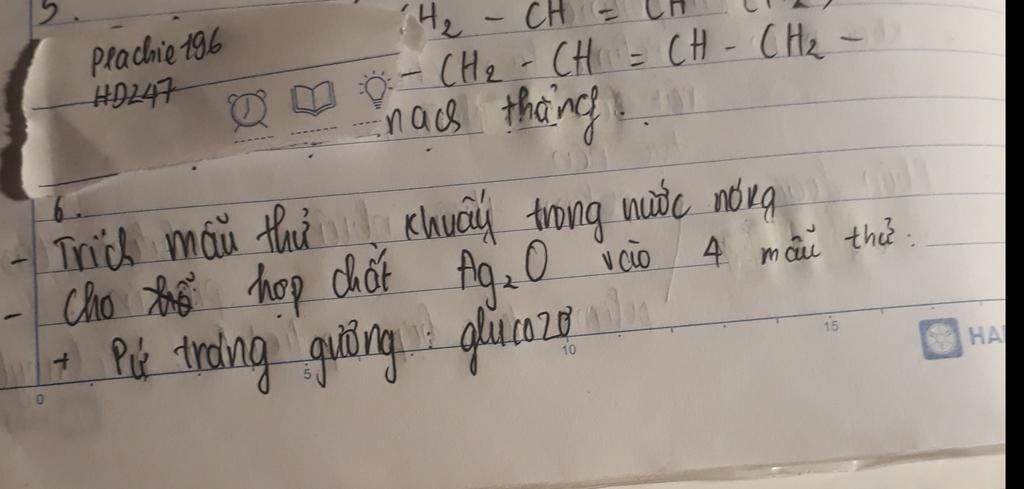 5.
CH₂ - CH = CH
Peachie196
HD247
- CH₂ - CH = CH - CH₂ -
mạch thẳng.
6.
- Trích mẫu thử khuấy trong nước nóng
- Cho hợp chất Ag₂O vào 4 mẫu thử.
+ Pứ tráng gương: glucozơ
0 5 10 15
HA